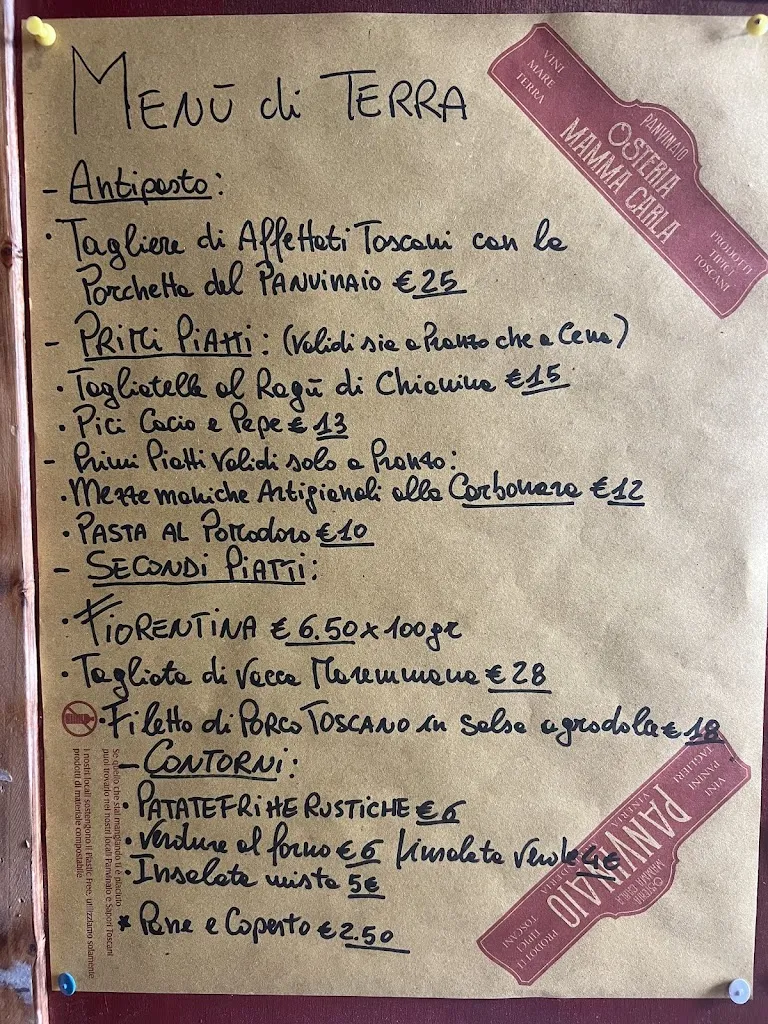 MENÙ di TERRA
VINI
MARE
TERRA
PANVINAIO
OSTERIA
MAMMA CARLA
PRODOTTI
TIPICI
TOSCANI
- Antipasto:
· Tagliere di Affettati Toscani con la
Porchetta del PANVINAIO € 25
- PRIMI PIATTI: (Validi sia a Pranzo che a Cena)
· Tagliatelle al Ragù di Chianina €15
· Pici Cacio e Pepe € 13
- Primi Piatti Validi solo a Pranzo:
· Mezze maniche Artigianali alla Carbonara €12
· PASTA AL Pomodoro €10
- SECONDI PIATTI:
· FIORENTINA € 6.50 x 100gr
· Tagliata di Vacca Maremmana € 28
· Filetto di PORCO TOSCANO in salsa agrodolce € 18
- CONTORNI:
· PATATE FRITTE RUSTICHE € 6
· Verdure al forno € 6 / insalata Verde 4€
· Insalata mista 5€
* Pane e Coperto € 2.50
Se quello che stai mangiando ti è piaciuto
puoi trovarlo nei nostri locali Panvinaio e Sapori Toscani
I nostri locali sostengono il Plastic Free, utilizziamo solamente
prodotti di materiale compostabile
VINI
PANINI
TAGLIERI
VINERIA
PANVINAIO
OSTERIA
MAMMA CARLA
PRODOTTI
TIPICI
TOSCANI